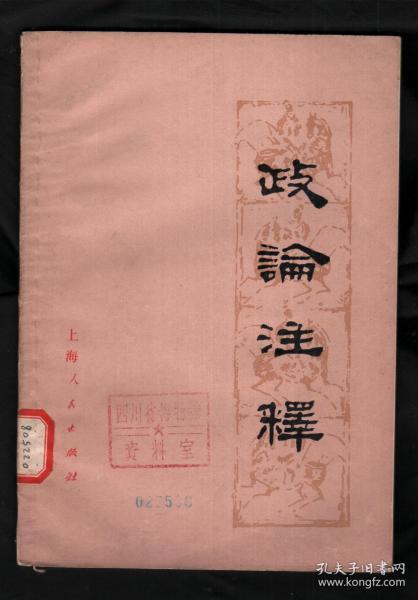 政論注釋
上海人民出版社
四川省博物舘
★
資料室
805220
孔夫子旧书网
www.kongfz.com